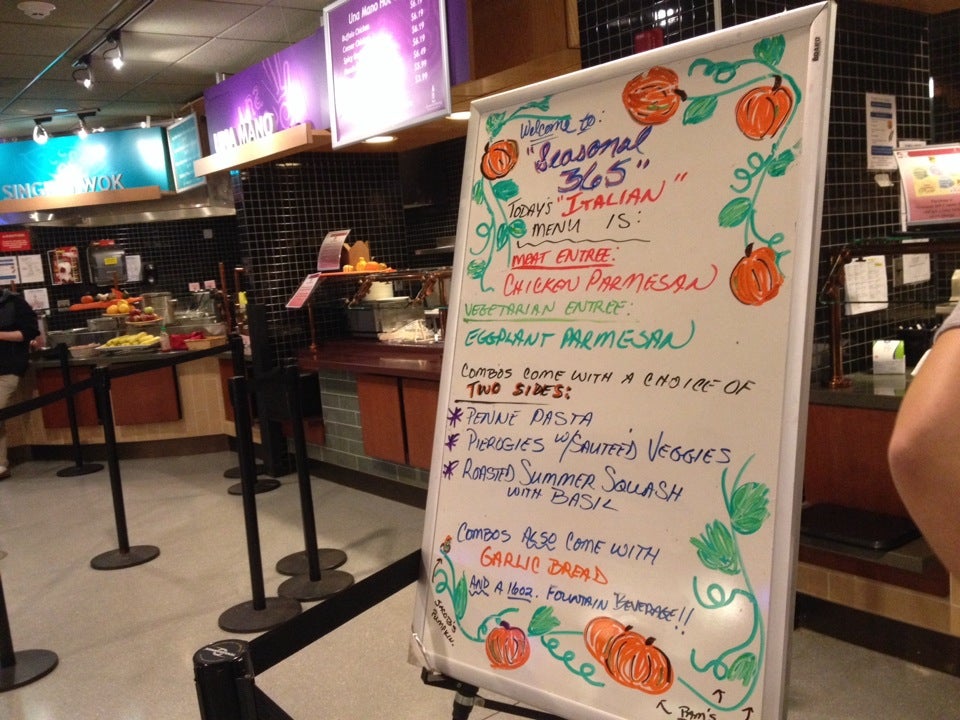 Una Mano Hot
Buffalo Chicken
$6.19
$6.19
$6.19
$6.49
$3.99
$3.99
UNA MANO
SING
WOK
BOARD
Welcome to:
"Seasonal
365"
TODAY'S "ITALIAN"
MENU IS:
MEAT ENTREE:
CHICKEN PARMESAN
VEGETARIAN ENTREE:
EGGPLANT PARMESAN
COMBOS COME WITH A CHOICE OF
TWO SIDES:
* PENNE PASTA
* PIEROGIES W/SAUTEED VEGGIES
* ROASTED SUMMER SQUASH
WITH BASIL
COMBOS ALSO COME WITH
GARLIC BREAD
AND A 16OZ. FOUNTAIN BEVERAGE!!
JACOB'S
PUMPKIN
PAM'S